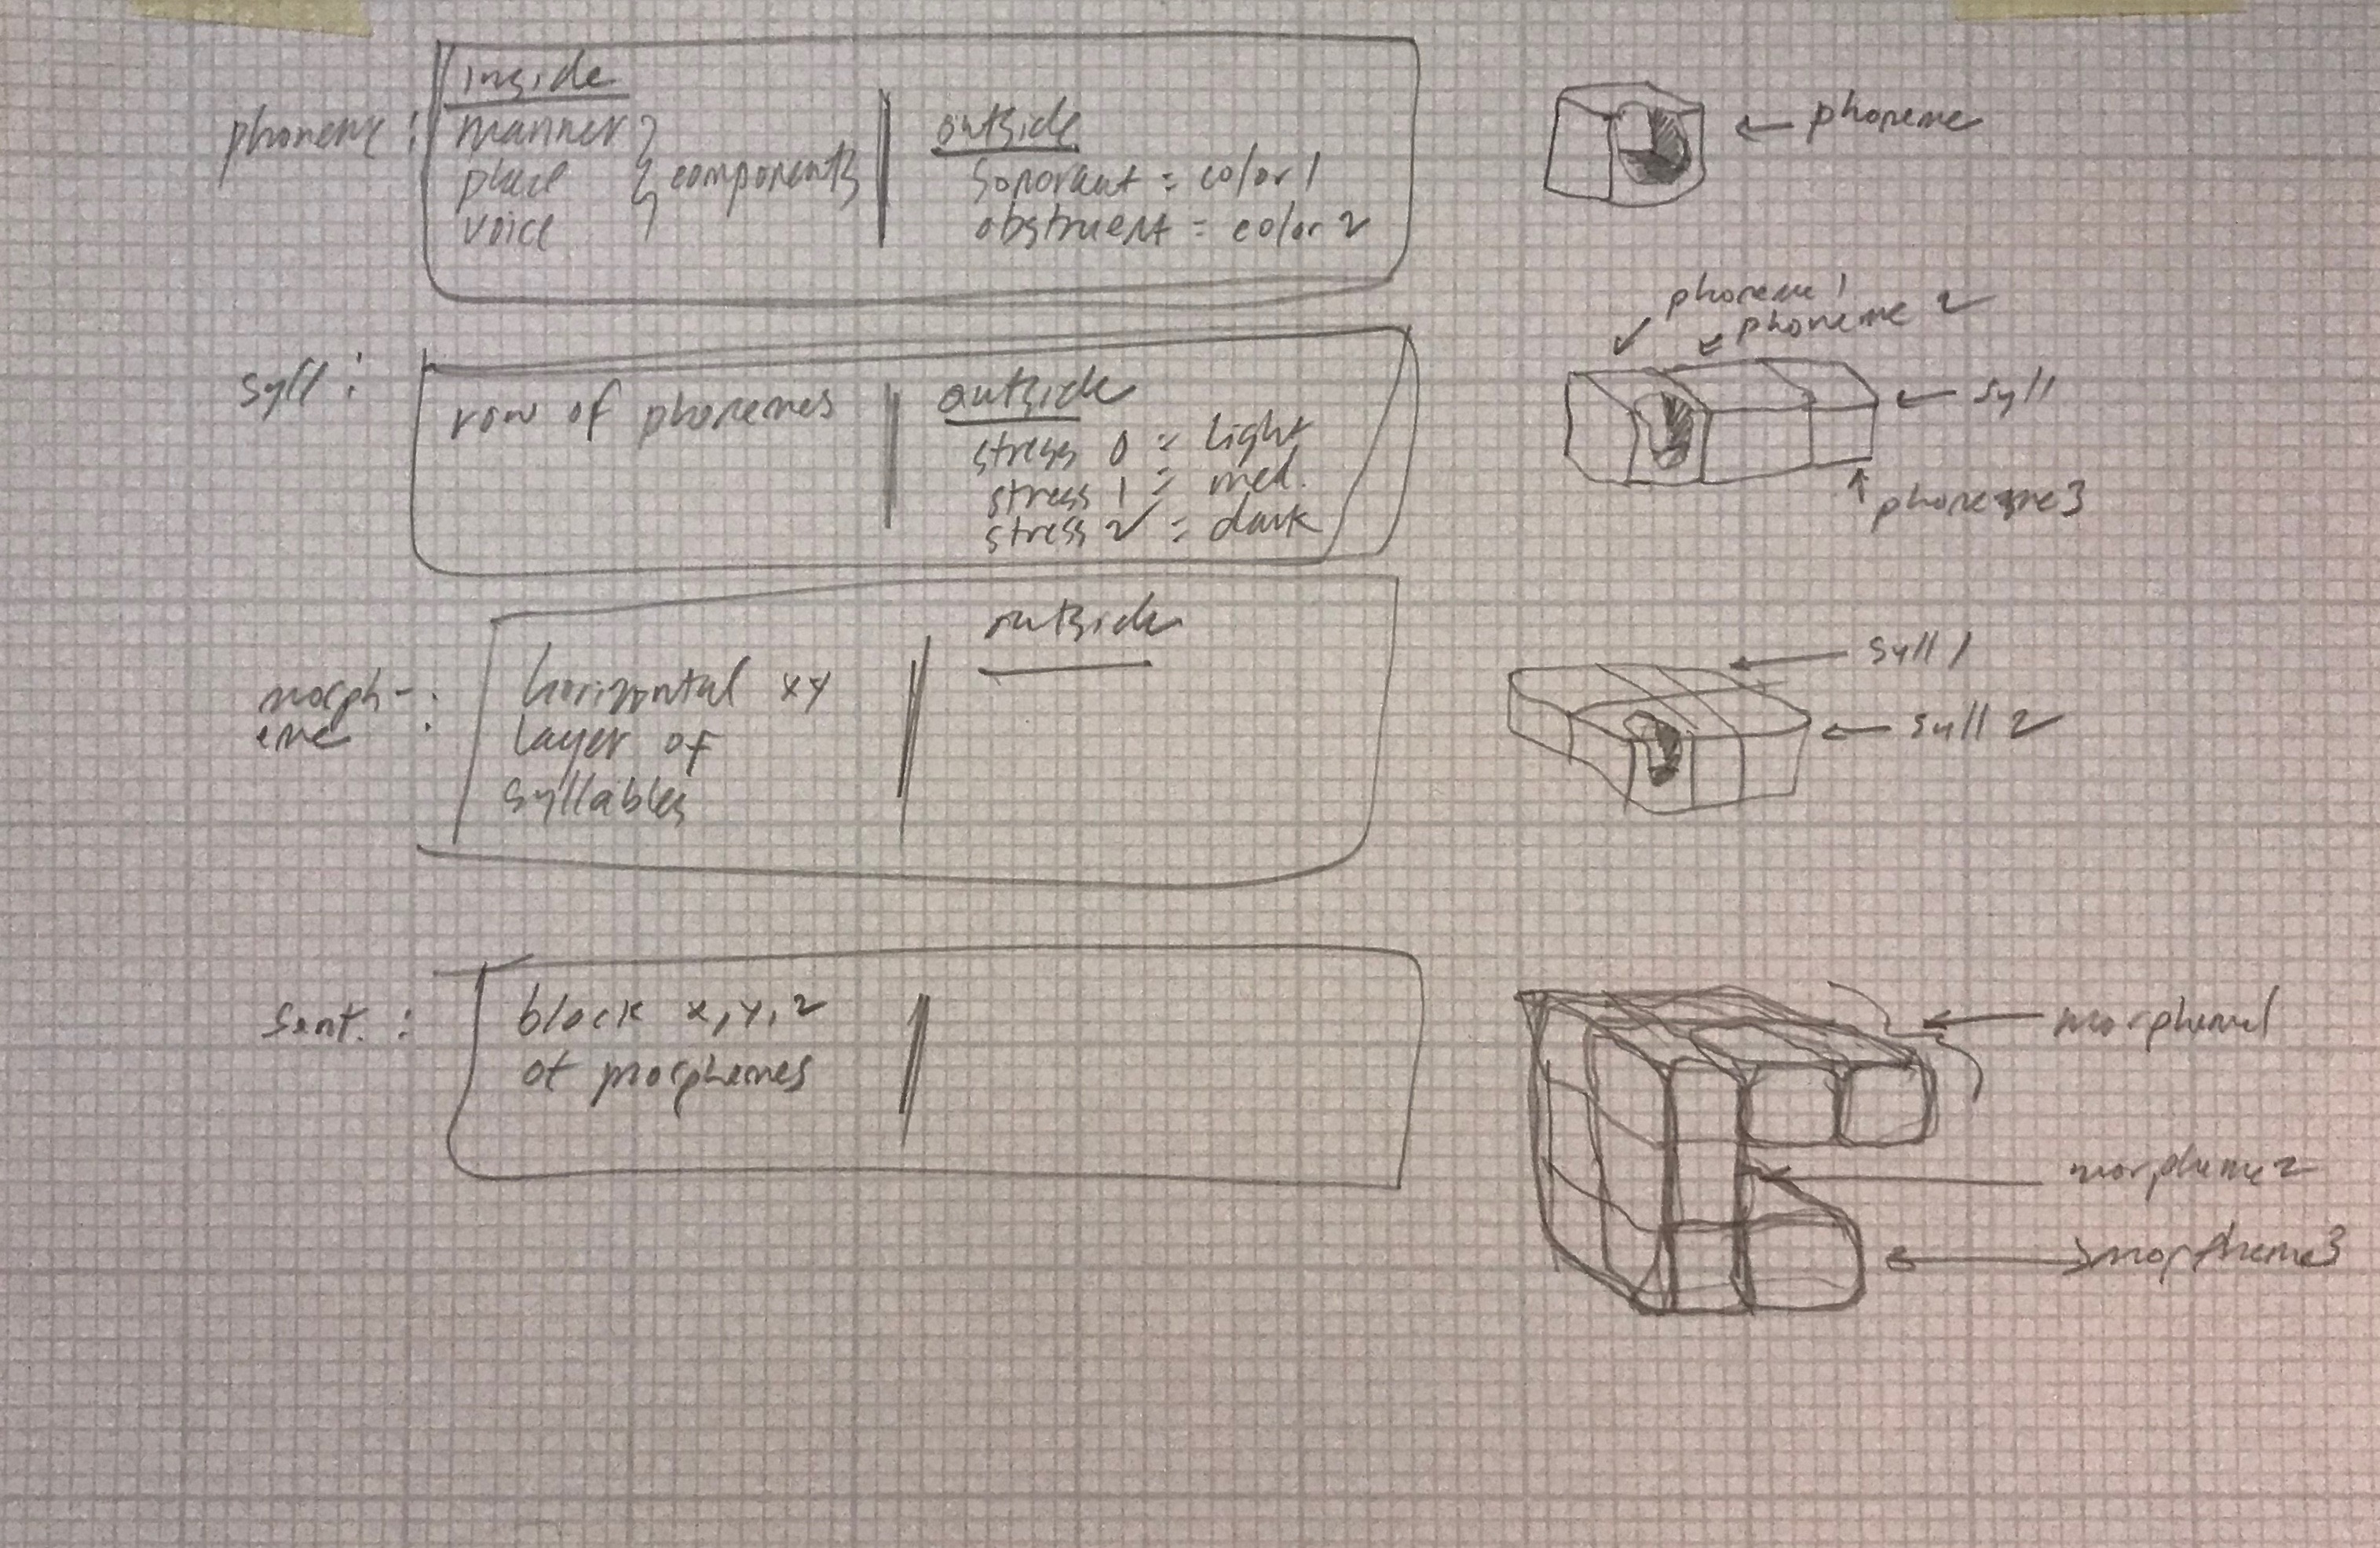 phoneme :
inside
manner
place
voice
components
outside
sonorant = color 1
obstruent = color 2
← phoneme
syll :
row of phonemes
outside
stress 0 = light
stress 1 = med.
stress 2 = dark
phoneme 1
phoneme 2
← syll
phoneme 3
morph- :
eme
horizontal xy
layer of
syllables
outside
syll 1
syll 2
sent. :
block x, y, z
of morphemes
morpheme 1
morpheme 2
morpheme 3